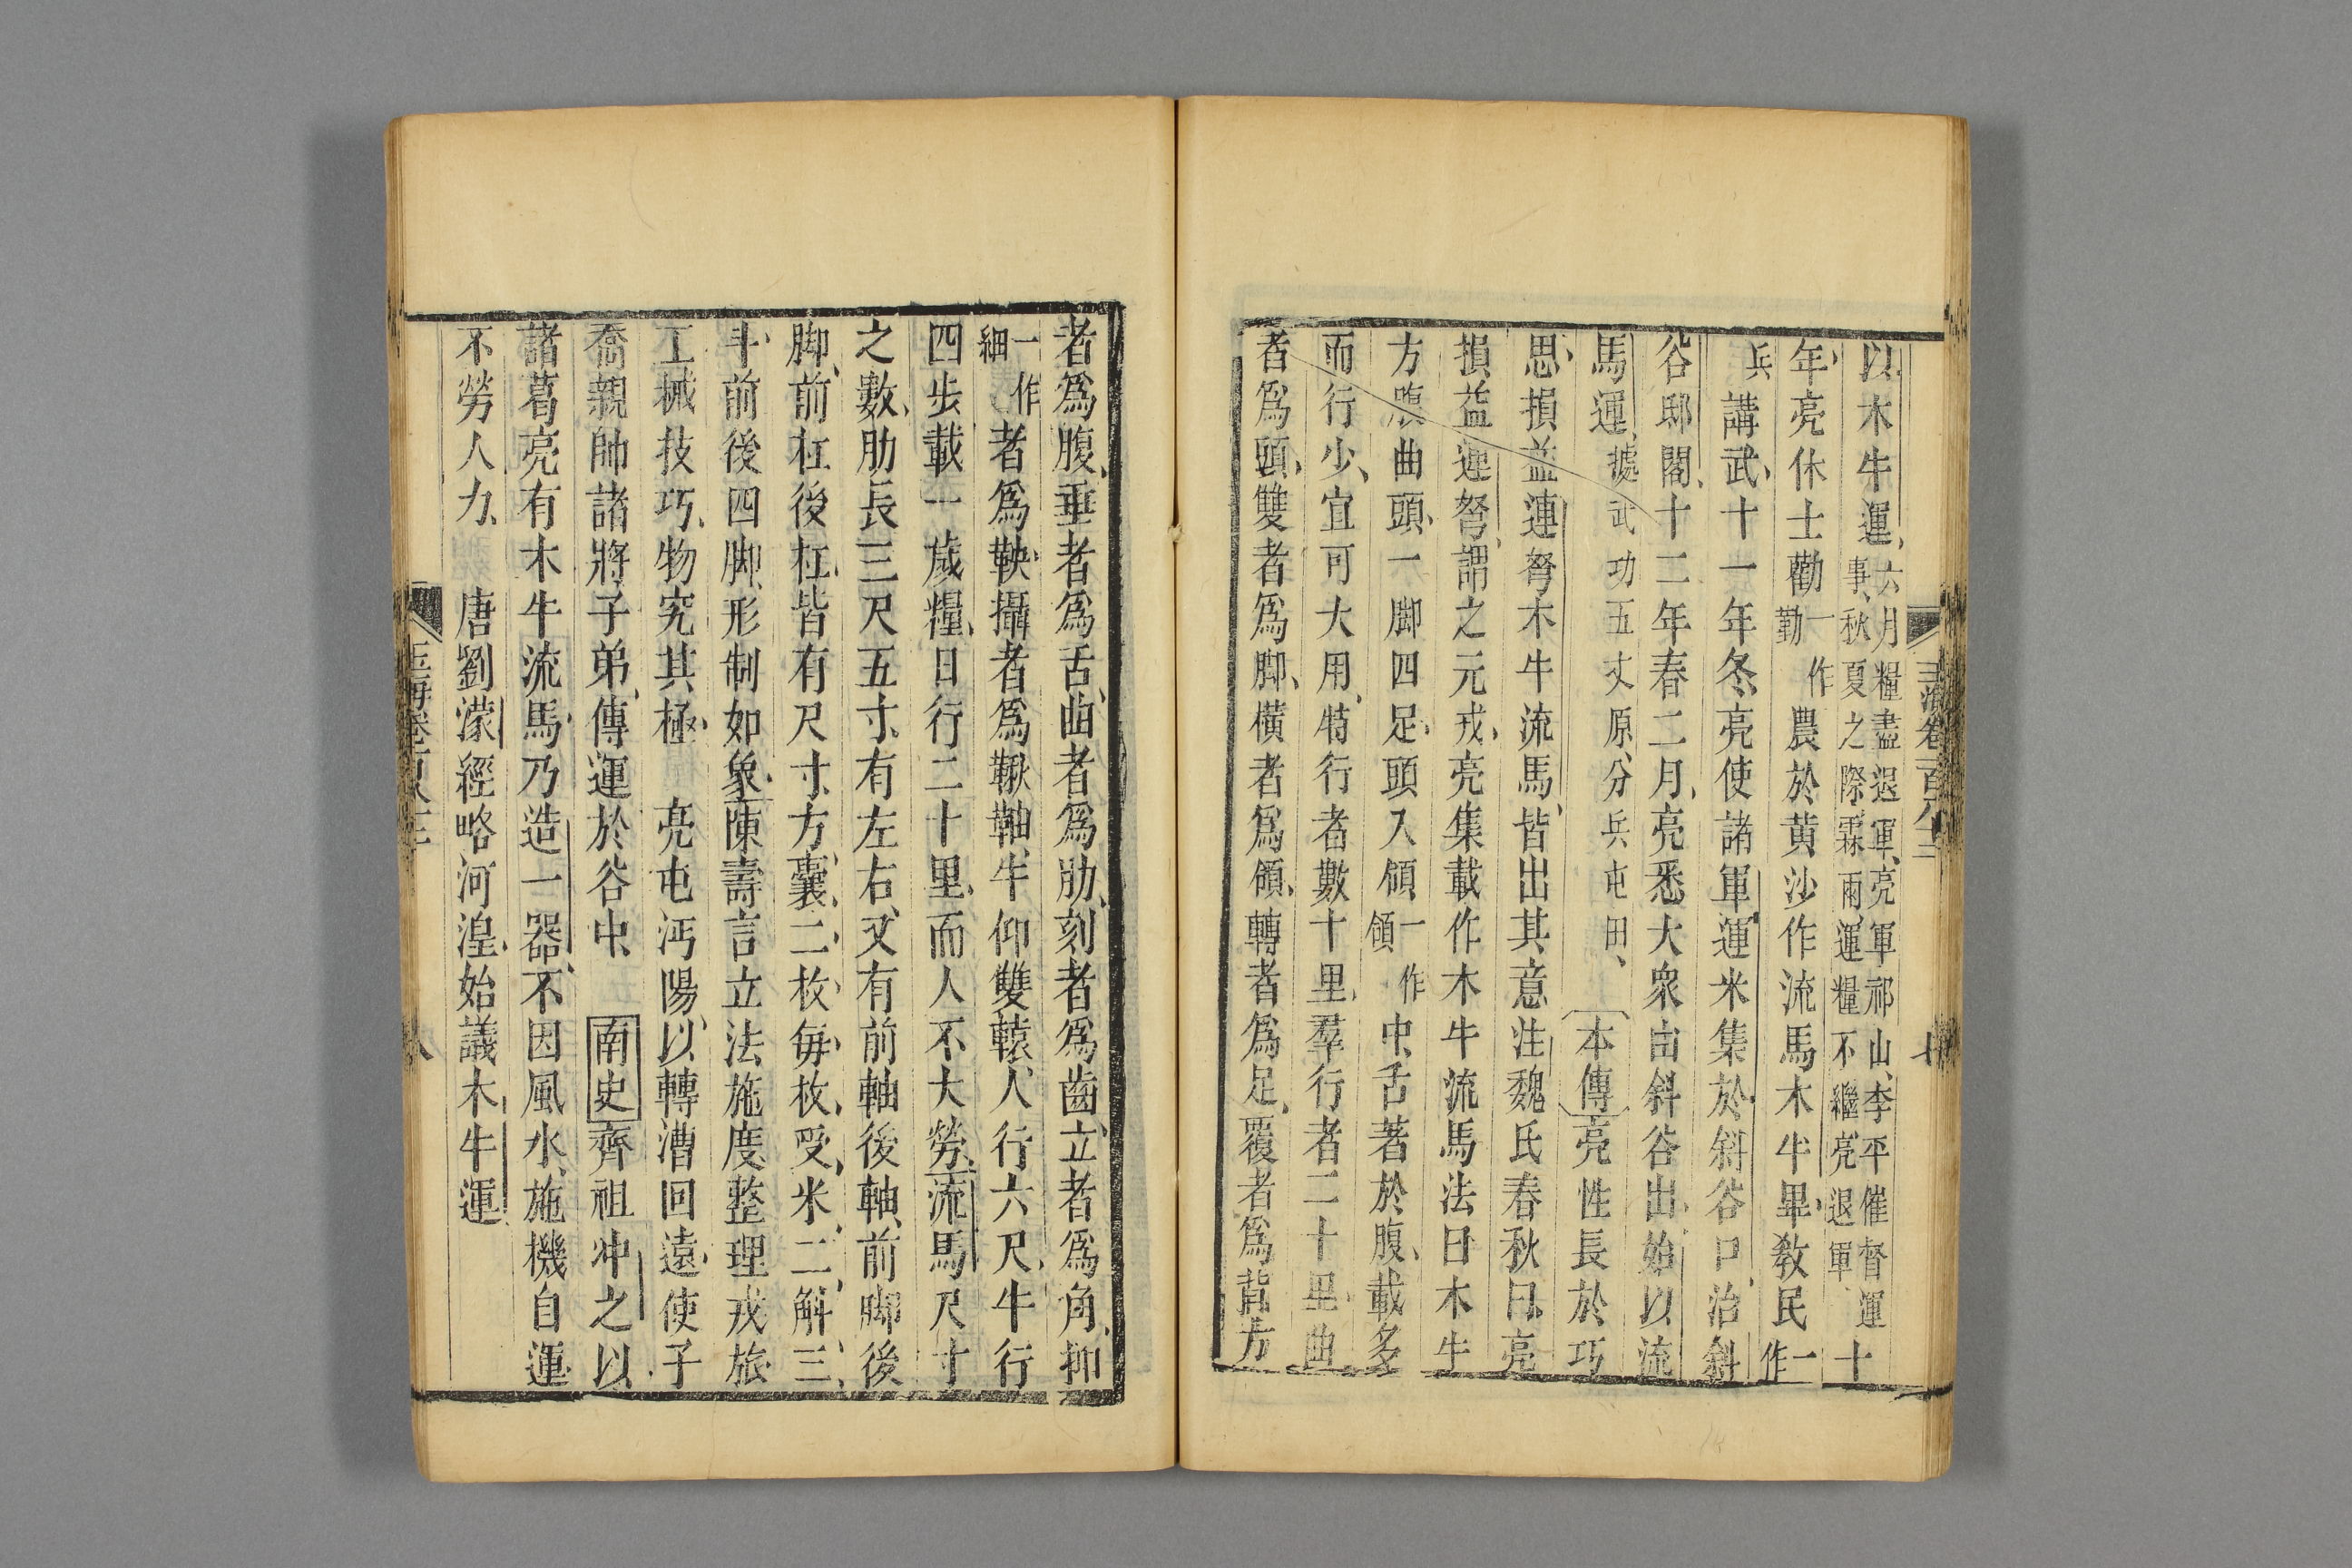 玉海卷一百八十二 七
以木牛運六月糧盡退軍亮軍祁山李平催督運事秋夏之際霖雨運糧不繼亮退軍十
年亮休士勸一作勤農於黄沙作流馬木牛畢教民一作
兵講武十一年冬亮使諸軍運米集於斜谷口治斜
谷邸閣十二年春二月亮悉大衆由斜谷出始以流
馬運據武功五丈原分兵屯田本傳亮性長於巧
思損益連弩木牛流馬皆出其意注魏氏春秋曰亮
損益連弩謂之元戎亮集載作木牛流馬法曰木牛
方腹曲頭一脚四足頭入領一作領中舌著於腹載多
而行少宜可大用特行者數十里羣行者二十里曲
者爲頭雙者爲脚橫者爲領轉者爲足覆者爲背方
者爲腹垂者爲舌曲者爲肋刻者爲齒立者爲角抑
一作細者爲鞅攝者爲鞦軸牛仰雙轅人行六尺牛行
四步載一歲糧日行二十里而人不大勞流馬尺寸
之數肋長三尺五寸有左右又有前軸後軸前脚後
脚前杠後杠皆有尺寸方囊二枚每枚受米二斛三
斗前後四脚形制如象陳壽言立法施度整理戎旅
工械技巧物究其極 亮屯沔陽以轉漕回遠使子
喬親帥諸將子弟傳運於谷中 南史齊祖冲之以
諸葛亮有木牛流馬乃造一器不因風水施機自運
不勞人力 唐劉濛經略河湟始議木牛運
玉海卷一百八十二 八